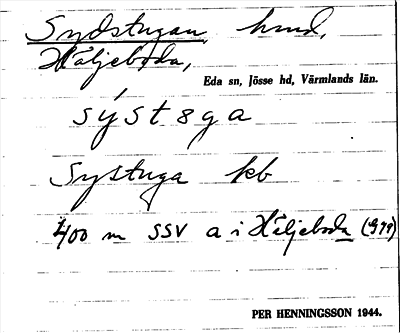 Sydstugan, hmd,
Häljeboda,
Eda sn, Jösse hd, Värmlands län.
sýst8ga
Systuga kb
400 m SSV a i Häljeboda (979)
PER HENNINGSSON 1944.